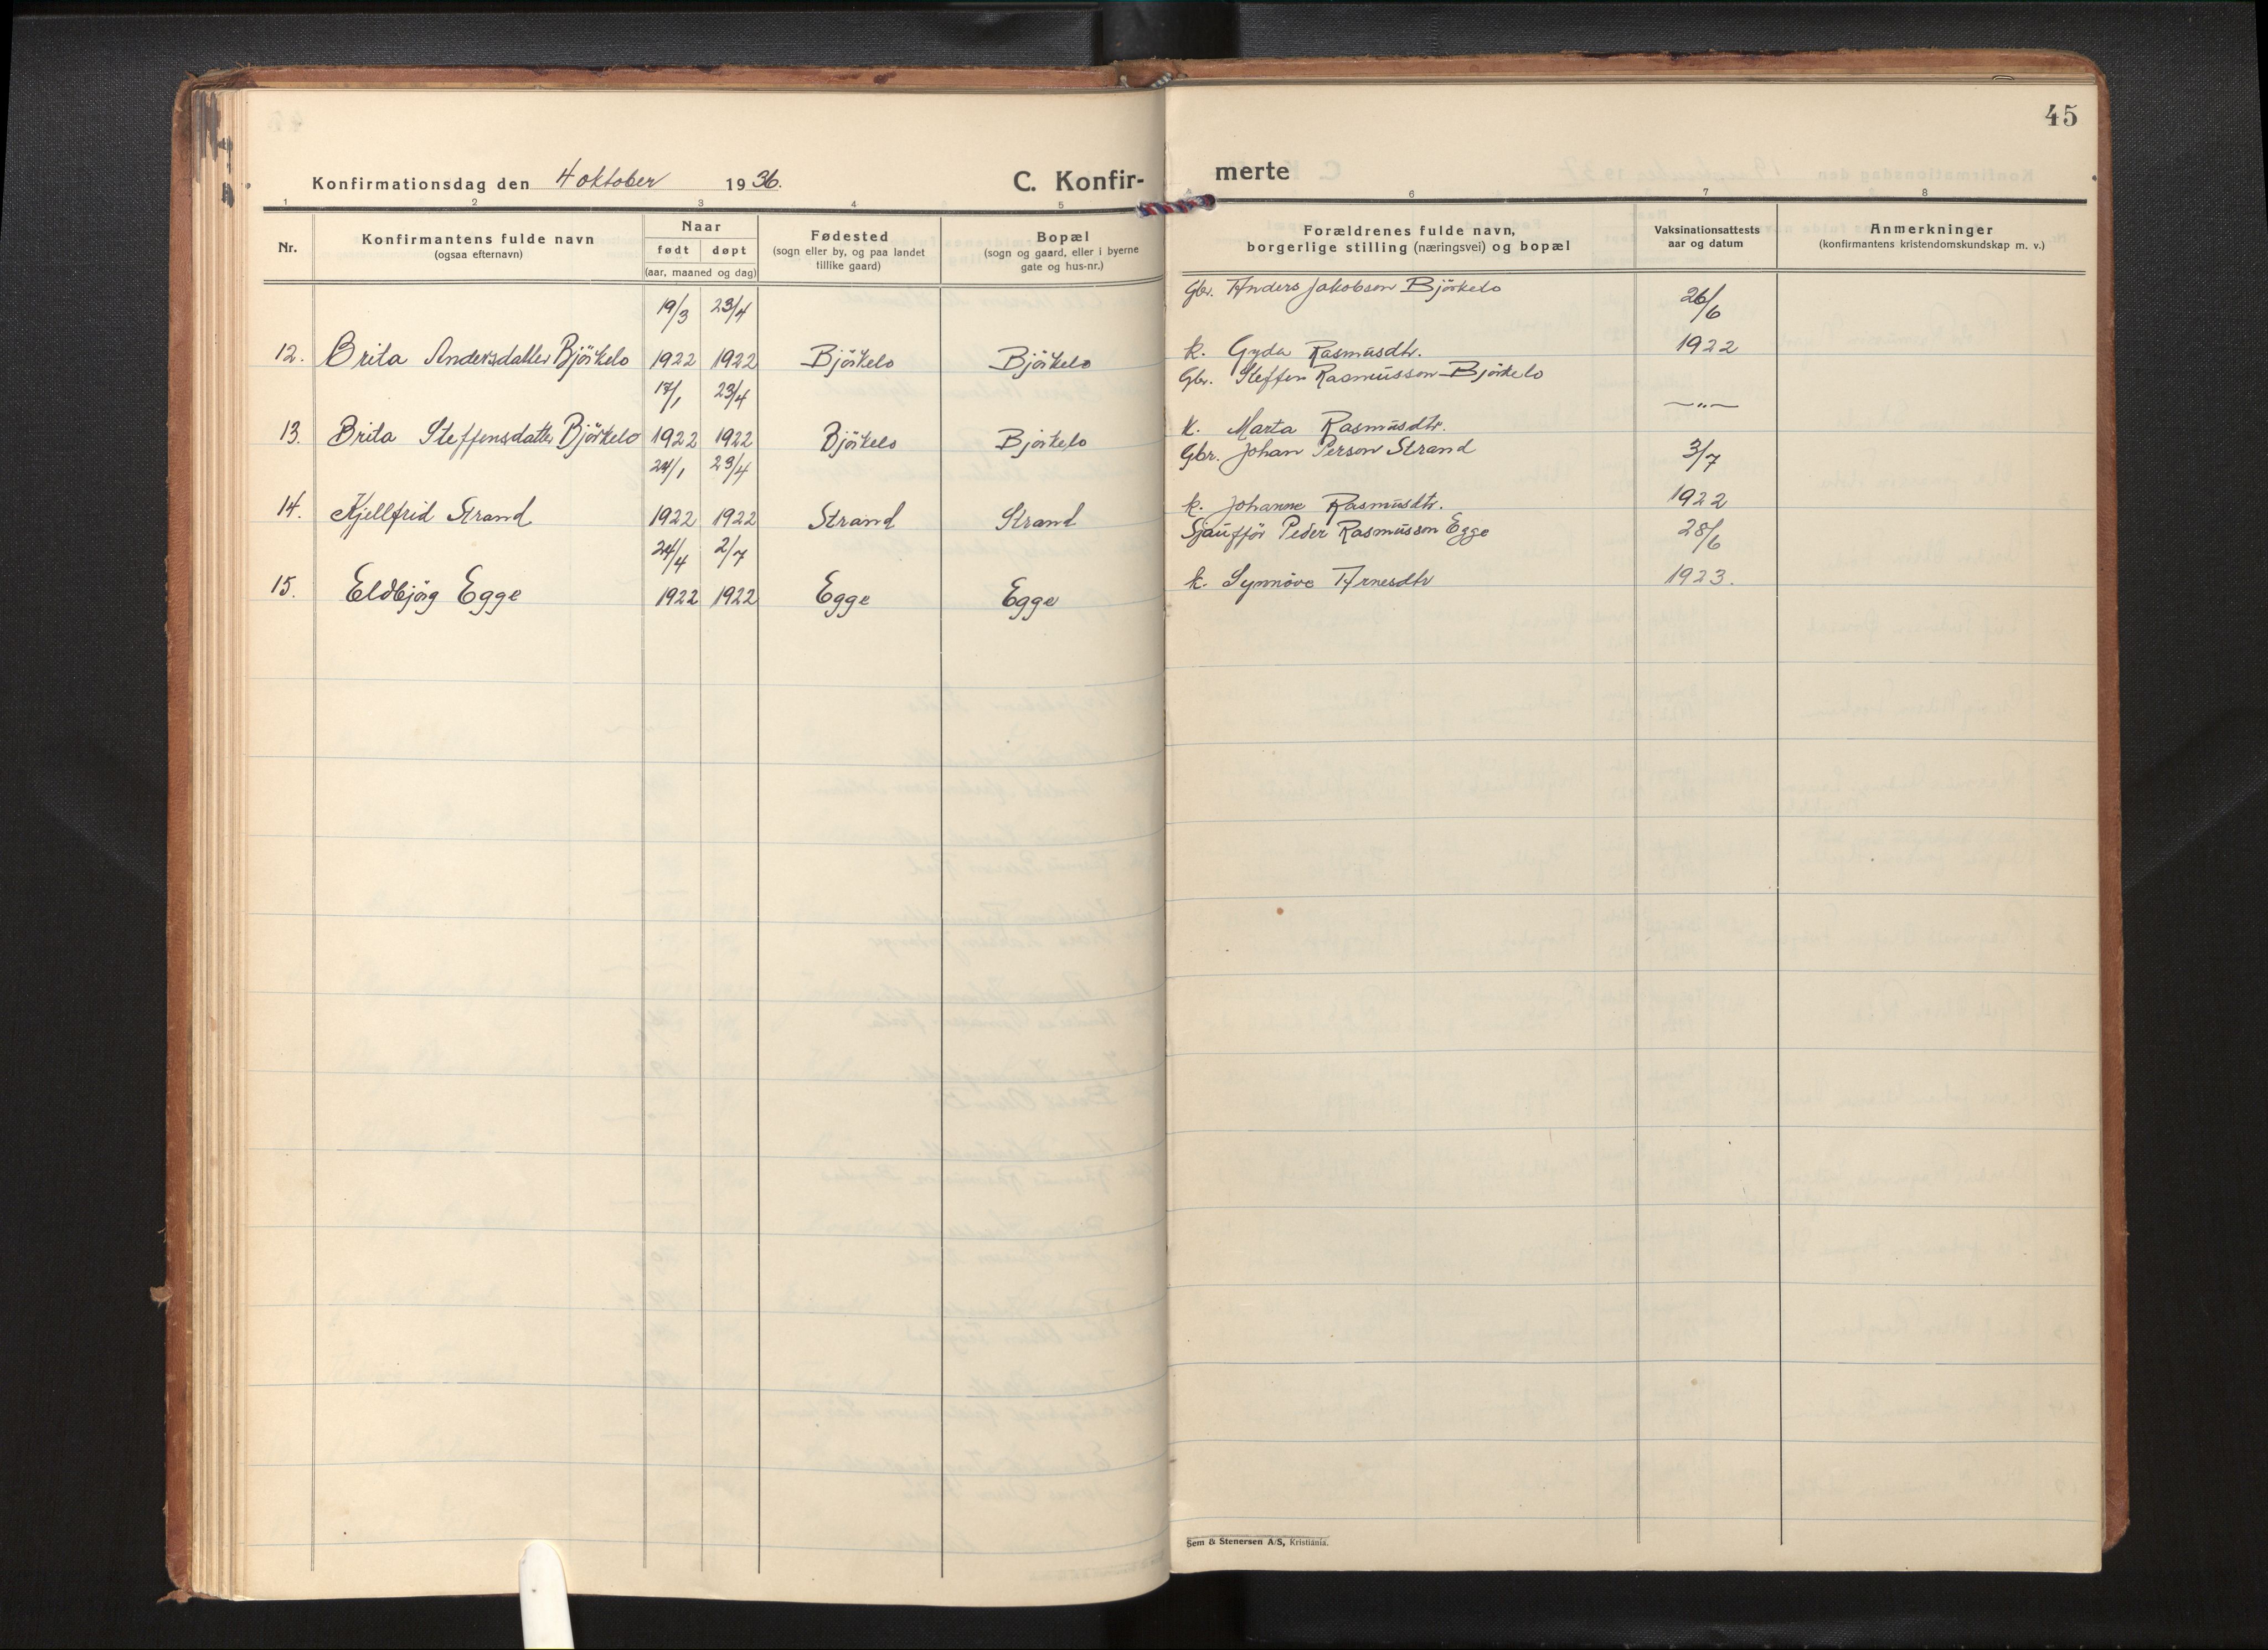 45
Konfirmationsdag den 4 oktober 1936. C. Konfir- merte
1 2 3 4 5 6 7 8
Nr. Konfirmantens fulde navn (ogsaa efternavn) Naar født døpt (aar, maaned og dag) Fødested (sogn eller by, og paa landet tillike gaard) Bopæl (sogn og gaard, eller i byerne gate og hus-nr.) Forældrenes fulde navn, borgerlige stilling (næringsvei) og bopæl Vaksinationsattests aar og datum Anmerkninger (konfirmantens kristendomskundskap m. v.)
19/3 23/4 Gbr. Anders Jakobson Björkelo 26/6
12. Brita Andersdatter Björkelo 1922 1922 Björkelo Björkelo k. Gyda Rasmusdtr. 1922
17/1 23/4 Gbr. Steffen Rasmusson Björkelo
13. Brita Steffensdatter Björkelo 1922 1922 Björkelo Björkelo k. Marta Rasmusdtr. —"—
24/1 23/4 Gbr. Johan Person Strand 3/7
14. Kjellfrid Strand 1922 1922 Strand Strand k. Johanne Rasmusdtr. 1922
24/4 2/7 Sjauffør Peder Rasmusson Egge 28/6
15. Eldbjörg Egge 1922 1922 Egge Egge k. Synnöve Arnesdtr 1923.
Sem & Stenersen A/S, Kristiania.